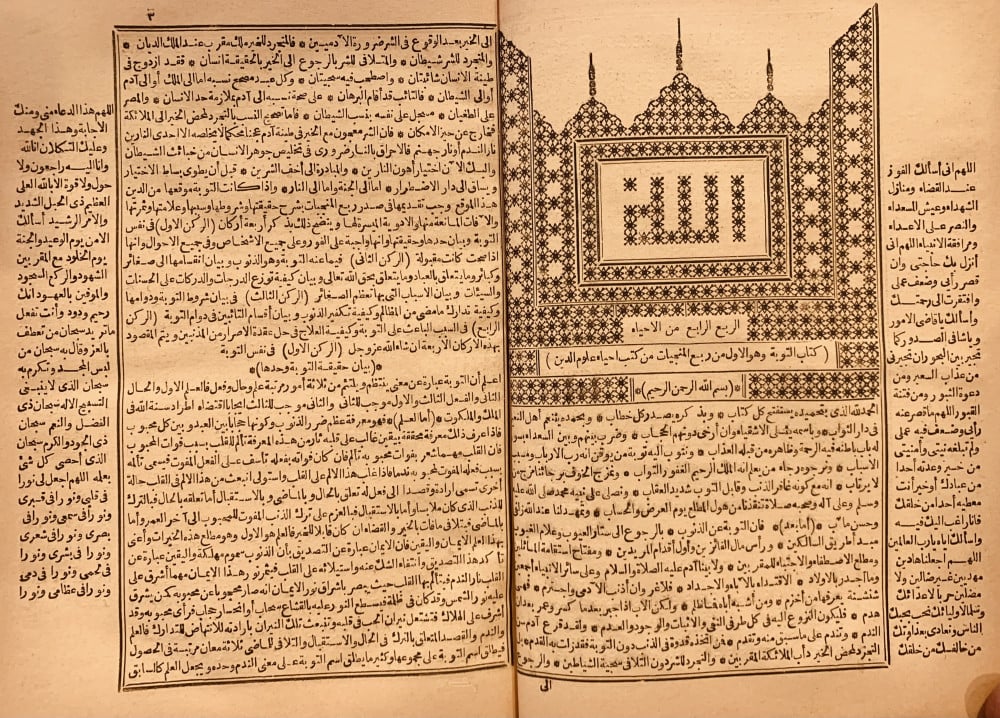 الله
الربع الرابع من الاحياء
(كتاب التوبة وهو الاول من ربع المنجيات من كتب احياء علوم الدين)
*(بسم الله الرحمن الرحيم)*
الحمد لله الذى بتحميده يستفتح كل كتاب * وبذكره يصدر كل خطاب * وبحمده يتنعم أهل النعيم
فى دار الثواب * وباسمه يتسلى الاشقياء وان أرخى دونهم الحجاب * وضرب بينهم وبين السعداء بسور
له باب باطنه فيه الرحمة وظاهره من قبله العذاب * ونتوب اليه توبة من يوقن انه رب الارباب ومسبب
الاسباب * ونرجوه رجاء من يعلم انه الملك الرحيم الغفور التواب * ونمزج الخوف برجائنا مزج من
لا يرتاب * انه مع كونه غافر الذنب وقابل التوب شديد العقاب * ونصلى على نبيه محمد صلى الله عليه
وسلم وعلى آله وصحبه صلاة تنقذنا من هول المطلع يوم العرض والحساب * وتمهد لنا عند الله زلفى
وحسن مآب * (أما بعد) * فان التوبة عن الذنوب * بالرجوع الى ستار العيوب وعلام الغيوب
مبدأ طريق السالكين * ورأس مال الفائزين وأول أقدام المريدين * ومفتاح استقامة المائلين
ومطلع الاصطفاء والاجتباء للمقربين * ولا بينا آدم عليه الصلاة والسلام وعلى سائر الانبياء أجمعين
وما أجدر بالاولاد * الاقتداء بالاباء والاجداد * فلا غرو ان أذنب الآدمى واجترم * فهى
شنشنة يعرفها من أخزم * ومن أشبه أباه فما ظلم * ولكن الاب اذا جبر بعدما كسر وعمر بعد أن
هدم * فليكن النزوع اليه فى كلا طرفى النفى والاثبات والوجود والعدم * ولقد قرع آدم سن
الندم * وتندم على ما سبق منه وتقدم * فمن اتخذه قدوة فى الذنب دون التوبة فقد زلت به القدم * بل
التجرد لمحض الخير دأب الملائكة المقربين * والتجرد للشر دون التلافى سجية الشياطين * والرجوع
الى
اللهم انى أسألك الفوز
عند القضاء ومنازل
الشهداء وعيش السعداء
والنصر على الاعداء
ومرافقة الانبياء اللهم انى
أنزل بك حاجتى وان
قصر رأيى وضعف عملى
وافتقرت الى رحمتك
وأسألك يا قاضى الامور
ويا شافى الصدور كما
تجير بين البحور ان تجيرنى
من عذاب السعير ومن
دعوة الثبور ومن فتنة
القبور اللهم ما قصر عنه
رأيى وضعف فيه عملى
ولم تبلغه نيتى وأمنيتى
من خير وعدته أحدا
من عبادك أو خير أنت
معطيه أحدا من خلقك
فانى أرغب اليك فيه
وأسألك اياه يا رب العالمين
اللهم اجعلنا هادين
مهديين غير ضالين ولا
مضلين حربا لاعدائك
وسلما لاوليائك نحب بحبك
الناس ونعادى بعداوتك
من خالفك من خلقك
٣
الى الخير بعد الوقوع فى الشر ضرورة الآدميين * فالمتجرد للخير ملك مقرب عند الملك الديان *
والمتجرد للشر شيطان * والمتلافى للشر بالرجوع الى الخير بالحقيقة انسان * فقد ازدوج فى
طينة الانسان شائبتان * واصطحب فيه سجيتان * وكل عبد مصحح نسبه اما الى الملك أو الى آدم
أو الى الشيطان * فالتائب قد أقام البرهان * على صحة نسبه الى آدم بملازمة حد الانسان * والمصر
على الطغيان * مسجل على نفسه بنسب الشيطان * فاما تصحيح النسب بالتجرد لمحض الخير الى الملائكة
فخارج عن حيز الامكان * فان الشر معجون مع الخير فى طينة آدم عجنا محكما لا يخلصه الا احدى النارين
نار الندم أو نار جهنم فالاحراق بالنار ضرورى فى تخليص جوهر الانسان من خبائث الشيطان
واليك الآن اختيار أهون النارين * والمبادرة الى أخف الشرين * قبل أن يطوى بساط الاختيار
ويساق الى دار الاضطرار * اما الى الجنة واما الى النار * واذا كانت التوبة موقعها من الدين
هذا الموقع وجب تقديمها فى صدر ربع المنجيات بشرح حقيقتها وشروطها وسببها وعلامتها وثمرتها
والآفات المانعة منها والادوية الميسرة لها ويتضح ذلك بذكر أربعة أركان (الركن الاول) فى نفس
التوبة وبيان حدها وحقيقتها وانها واجبة على الفور وعلى جميع الاشخاص وفى جميع الاحوال وانها
اذا صحت كانت مقبولة (الركن الثانى) فيما عنه التوبة وهو الذنوب وبيان انقسامها الى صغائر
وكبائر وما يتعلق بالعباد وما يتعلق بحق الله تعالى وبيان كيفية توزع الدرجات والدركات على الحسنات
والسيئات وبيان الاسباب التى بها تعظم الصغائر (الركن الثالث) فى بيان شروط التوبة ودوامها
وكيفية تدارك ما مضى من المظالم وكيفية تكفير الذنوب وبيان أقسام التائبين فى دوام التوبة (الركن
الرابع) فى السبب الباعث على التوبة وكيفية العلاج فى حل عقدة الاصرار من المذنبين ويتم المقصود
بهذه الاركان الاربعة ان شاء الله عز وجل (الركن الاول) فى نفس التوبة
*(بيان حقيقة التوبة وحدها)*
اعلم أن التوبة عبارة عن معنى ينتظم ويلتئم من ثلاثة أمور مرتبة علم وحال وفعل فالعلم الاول والحال
الثانى والفعل الثالث والاول موجب للثانى والثانى موجب للثالث ايجابا اقتضاه اطراد سنة الله فى
الملك والملكوت * (أما العلم) * فهو معرفة عظم ضرر الذنوب وكونها حجابا بين العبد وبين كل محبوب
فاذا عرف ذلك معرفة محققة بيقين غالب على قلبه ثار من هذه المعرفة تألم للقلب بسبب فوات المحبوب
فان القلب مهما شعر بفوات محبوبه تألم فان كان فواته بفعله تأسف على الفعل المفوت فيسمى تألمه
بسبب فعله المفوت لمحبوبه ندما فاذا غلب هذا الالم على القلب واستولى انبعث من هذا الالم فى القلب حالة
أخرى تسمى ارادة وقصدا الى فعل له تعلق بالحال والماضى وبالاستقبال أما تعلقه بالحال فبالترك
للذنب الذى كان ملابسا وأما بالاستقبال فبالعزم على ترك الذنب المفوت للمحبوب الى آخر العمر وأما
بالماضى فبتلافى ما فات بالجبر والقضاء ان كان قابلا للجبر فالعلم هو الاول وهو مطلع هذه الخيرات وأعنى
بهذا العلم الايمان واليقين فان الايمان عبارة عن التصديق بأن الذنوب سموم مهلكة واليقين عبارة عن
تأكد هذا التصديق وانتفاء الشك عنه واستيلائه على القلب فيثمر نور هذا الايمان مهما أشرق على
القلب نار الندم فيتألم بها القلب حيث يبصر باشراق نور الايمان انه صار محجوبا عن محبوبه كمن يشرق
عليه نور الشمس وقد كان فى ظلمة فسطع النور عليه بانقشاع سحاب أو انحسار حجاب فرأى محبوبه وقد
أشرف على الهلاك فتشتعل نيران الحب فى قلبه وتنبعث تلك النيران بارادته للانتهاض للتدارك فالعلم
والندم والقصد المتعلق بالترك فى الحال والاستقبال والتلافى للماضى ثلاثة معان مرتبة فى الحصول
فيطلق اسم التوبة على مجموعها وكثيرا ما يطلق اسم التوبة على معنى الندم وحده ويجعل العلم كالسابق
اللهم هذا الدعاء منى ومنك
الاجابة وهذا الجهد
وعليك التكلان انا لله
وانا اليه راجعون ولا
حول ولا قوة الا بالله العلى
العظيم ذى الحبل الشديد
والامر الرشيد أسألك
الامن يوم الوعيد والجنة
يوم الخلود مع المقربين
الشهود والركع السجود
والموفين بالعهود انك
رحيم ودود وأنت تفعل
ما تريد سبحان من تعطف
بالعز وقال به سبحان من
لبس المجد وتكرم به
سبحان الذى لا ينبغى
التسبيح الا له سبحان ذى
الفضل والنعم سبحان
ذى الجود والكرم سبحان
الذى أحصى كل شئ
بعلمه اللهم اجعل لى نورا
فى قلبى ونورا فى قبرى
ونورا فى سمعى ونورا فى
بصرى ونورا فى شعرى
ونورا فى بشرى ونورا
فى لحمى ونورا فى دمى
ونورا فى عظامى ونورا